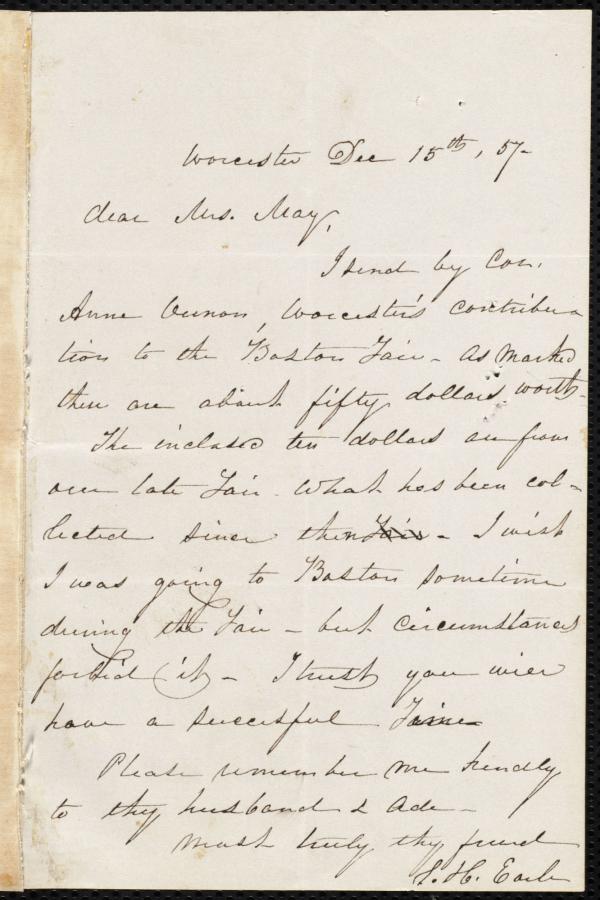 Worcester Dec 15th, 57-
dear Mrs. May,
I send by Con.
Anne Vernon, Worcester's contribu-
tion to the Boston Fair - As marked
there are about fifty dollars worth-
The inclosed ten dollars are from
our late Fair. What has been col=
lected since then Fair - I wish
I was going to Boston sometime
during the Fair - but circumstances
forbid it - I trust you will
have a succesful
Please remember me kindly
to thy husband & Ade -
most truly thy friend
S. H. Earle